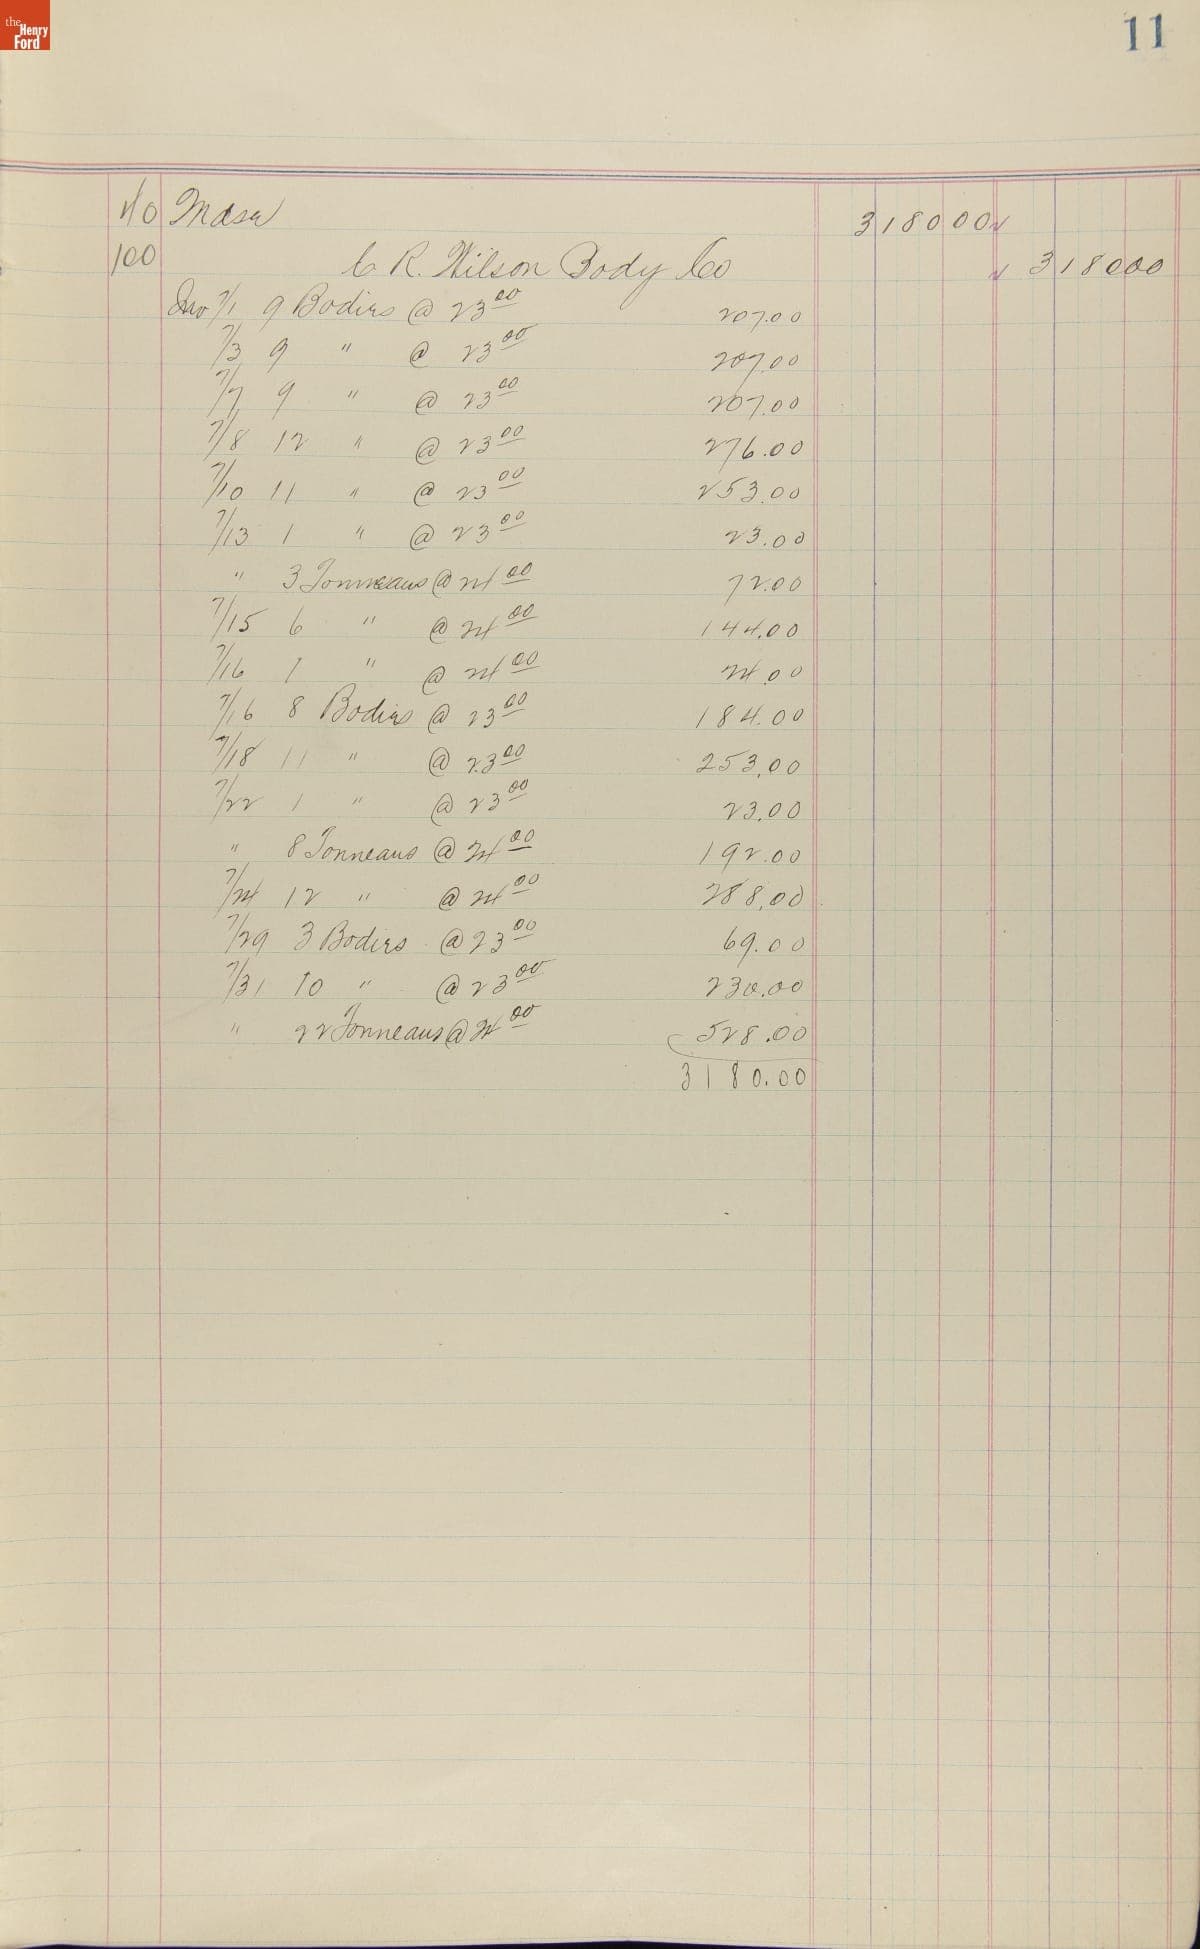 the Henry Ford
11
40 Mdse 3180 00 ✓
100 C R. Wilson Body Co ✓ 3180 00
Inv 7/1 9 Bodies @ 23 00 207.00
7/3 9 " @ 23 00 207.00
7/7 9 " @ 23 00 207.00
7/8 12 " @ 23 00 276.00
7/10 11 " @ 23 00 253.00
7/13 1 " @ 23 00 23.00
" 3 Tonneaus @ 24 00 72.00
7/15 6 " @ 24 00 144.00
7/16 1 " @ 24 00 24.00
7/16 8 Bodies @ 23 00 184.00
7/18 11 " @ 23 00 253.00
7/22 1 " @ 23 00 23.00
" 8 Tonneaus @ 24 00 192.00
7/24 12 " @ 24 00 288.00
7/29 3 Bodies @ 23 00 69.00
7/31 10 " @ 23 00 230.00
" 22 Tonneaus @ 24 00 528.00
3180.00